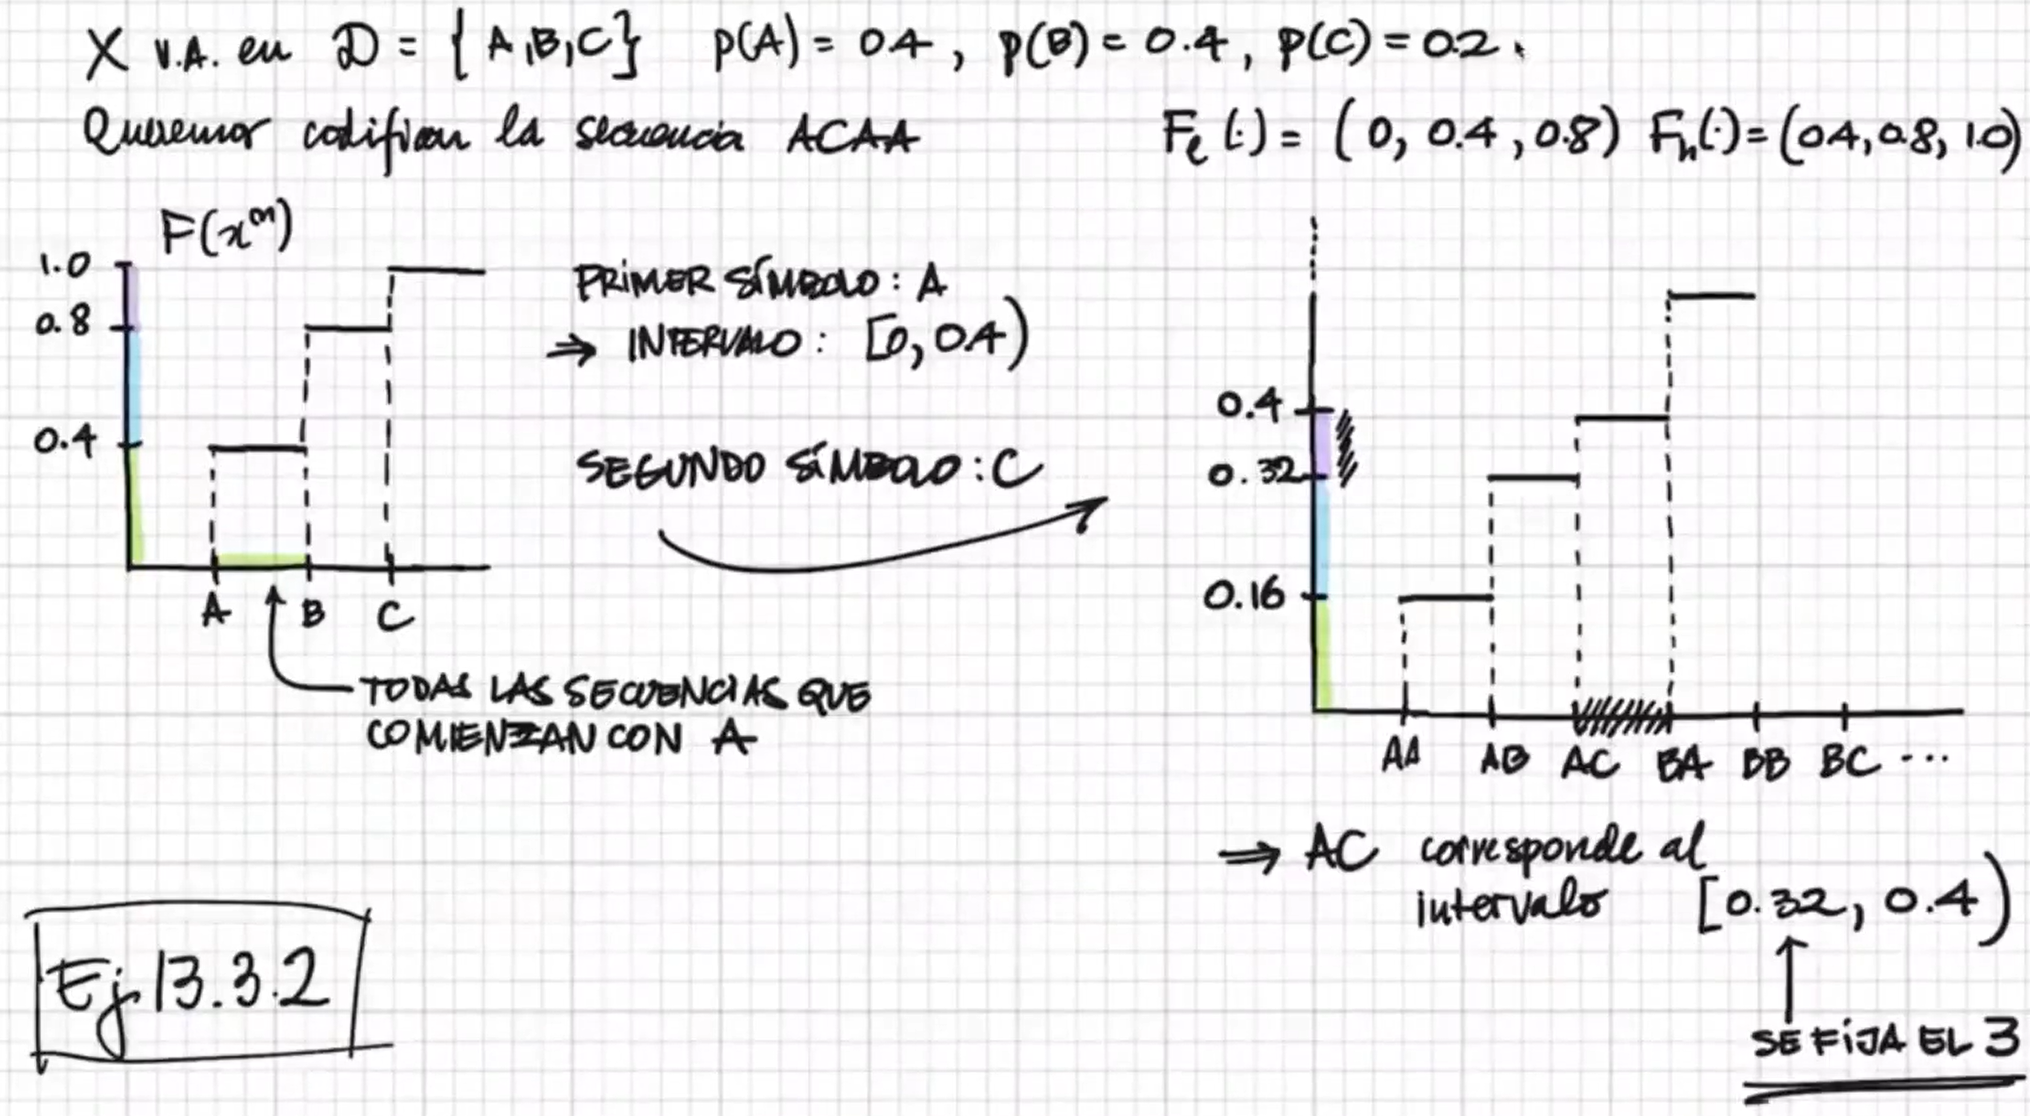 X V.A. en D = {A,B,C} p(A) = 0.4, p(B) = 0.4, p(C) = 0.2.
Queremos codificar la secuencia ACAA
Fℓ(·) = (0, 0.4, 0.8) Fh(·) = (0.4, 0.8, 1.0)
F(xᵐ)
1.0
0.8
0.4
A B C
TODAS LAS SECUENCIAS QUE
COMIENZAN CON A
PRIMER SÍMBOLO: A
⇒ INTERVALO: [0, 0.4)
SEGUNDO SÍMBOLO: C
0.4
0.32
0.16
AA AB AC BA BB BC ...
⇒ AC corresponde al
intervalo [0.32, 0.4)
SE FIJA EL 3
Ej 13.3.2